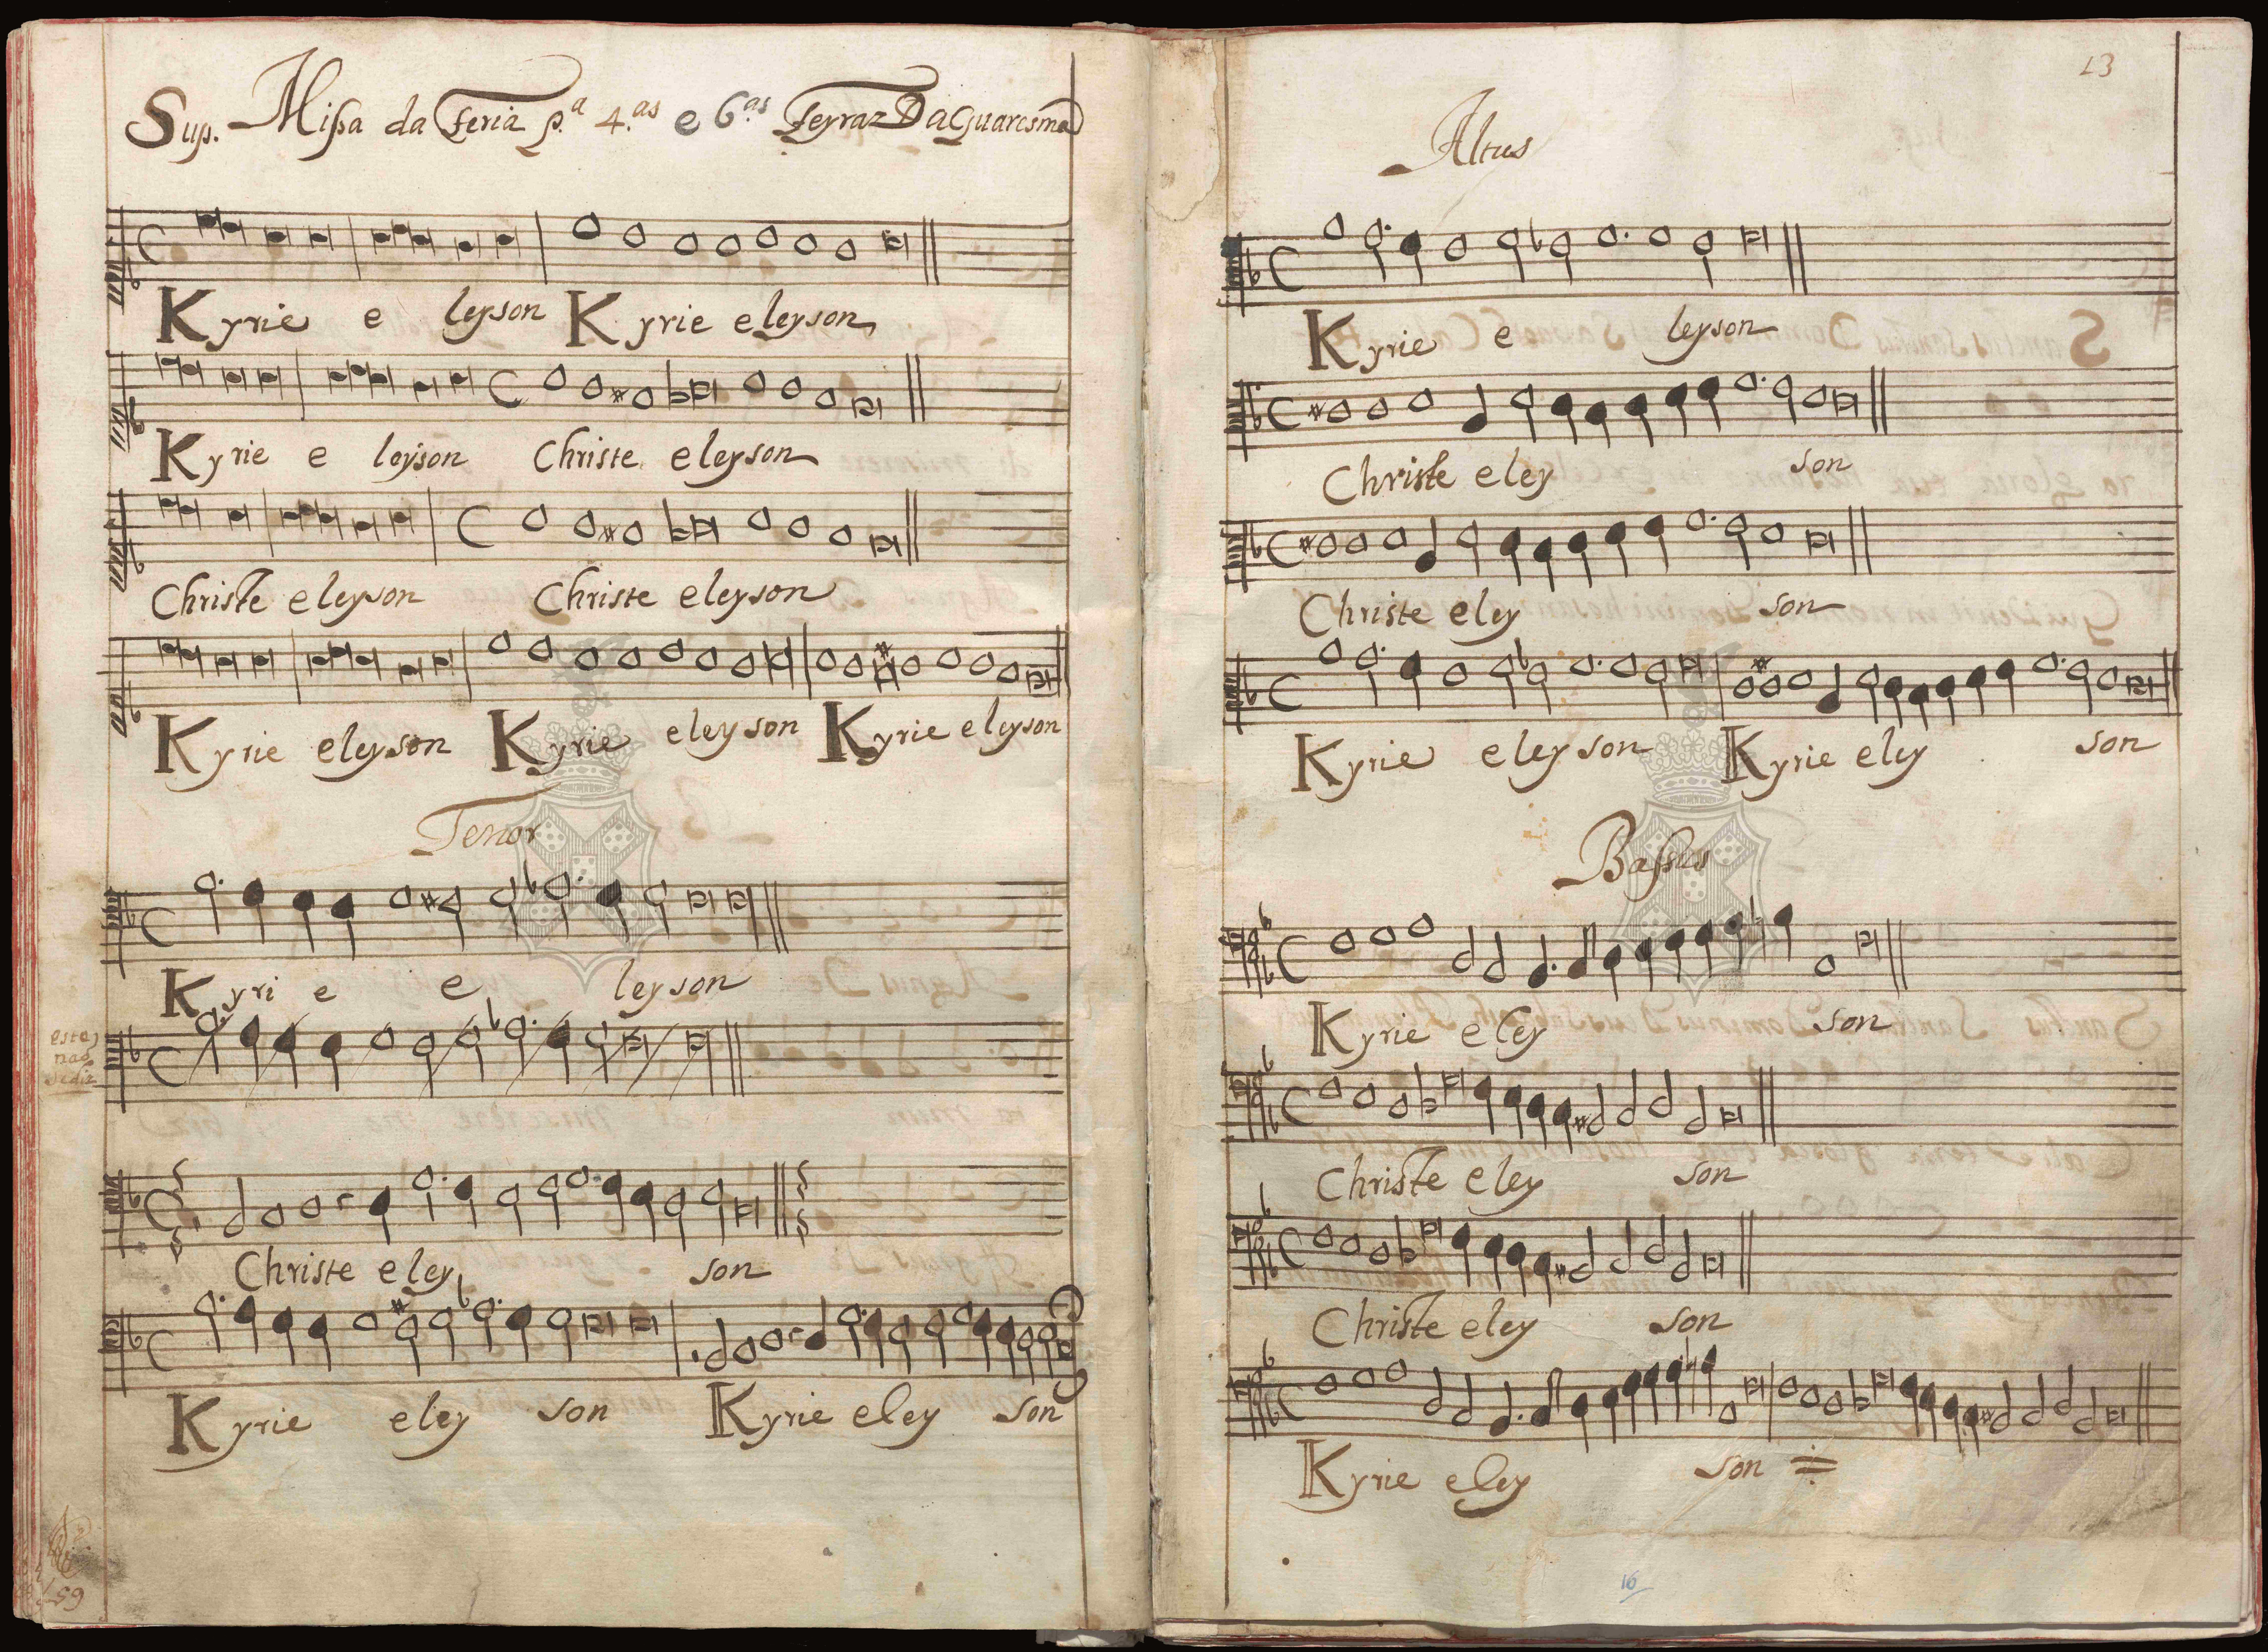 Sup. Missa da Feria p.ª 4.as e 6.as Feyraz Da Quaresma
Kyrie e leyson Kyrie eleyson
Kyrie e leyson Christe eleyson
Christe eleyson Christe eleyson
Kyrie eleyson Kyrie eleyson Kyrie eleyson
Tenor
Kyri e e leyson
esta
nao
se diz
Christe eley son
Kyrie eley son Kyrie eley son
59
13
Altus
Kyrie e leyson
Christe eley son
Christe eley son
Kyrie eleyson Kyrie eley son
Bassus
Kyrie eley son
Christe eley son
Christe eley son
Kyrie eley son
16